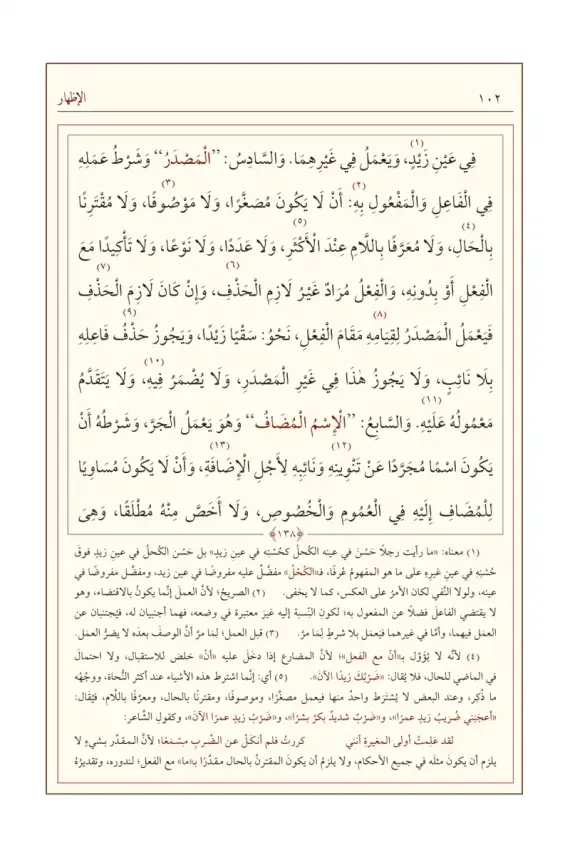 ١٠٢ الإظهار
فِي عَيْنِ زَيْدٍ، (١) وَيَعْمَلُ فِي غَيْرِهِمَا. وَالسَّادِسُ: ’’الْمَصْدَرُ‘‘ وَشَرْطُ عَمَلِهِ
فِي الْفَاعِلِ وَالْمَفْعُولِ بِهِ: (٢) أَنْ لَا يَكُونَ مُصَغَّرًا، وَلَا مَوْصُوفًا، (٣) وَلَا مُقْتَرِنًا
بِالْحَالِ، (٤) وَلَا مُعَرَّفًا بِاللَّامِ عِنْدَ الْأَكْثَرِ، (٥) وَلَا عَدَدًا، وَلَا نَوْعًا، وَلَا تَأْكِيدًا مَعَ
الْفِعْلِ أَوْ بِدُونِهِ، وَالْفِعْلُ مُرَادٌ غَيْرُ لَازِمِ الْحَذْفِ، (٦) وَإِنْ كَانَ لَازِمَ الْحَذْفِ (٧)
فَيَعْمَلُ الْمَصْدَرُ لِقِيَامِهِ مَقَامَ الْفِعْلِ، (٨) نَحْوُ: سَقْيًا زَيْدًا، وَيَجُوزُ حَذْفُ فَاعِلِهِ (٩)
بِلَا نَائِبٍ، وَلَا يَجُوزُ هٰذَا فِي غَيْرِ الْمَصْدَرِ، وَلَا يُضْمَرُ فِيهِ، (١٠) وَلَا يَتَقَدَّمُ
مَعْمُولُهُ عَلَيْهِ. (١١) وَالسَّابِعُ: ’’الْاِسْمُ الْمُضَافُ‘‘ وَهُوَ يَعْمَلُ الْجَرَّ، وَشَرْطُهُ أَنْ
يَكُونَ اسْمًا مُجَرَّدًا عَنْ تَنْوِينِهِ (١٢) وَنَائِبِهِ لِأَجْلِ الْإِضَافَةِ، (١٣) وَأَنْ لَا يَكُونَ مُسَاوِيًا
لِلْمُضَافِ إِلَيْهِ فِي الْعُمُومِ وَالْخُصُوصِ، وَلَا أَخَصَّ مِنْهُ مُطْلَقًا، وَهِىَ
﴿١٣٨﴾
(١) معناه: «ما رأيت رجلًا حَسُنَ في عينه الكُحلُ كحُسْنِه في عينِ زيدٍ» بل حَسُن الكُحلُ في عين زيدٍ فوقَ
حُسْنِه في عينِ غيرِه على ما هو المفهومُ عُرفًا، فـ«الكُحْلُ» مفضَّل عليه مفروضًا في عين زيد، ومفضَّل مفروضًا في
عينه، ولولا النَّفي لكان الأمرُ على العكس، كما لا يخفى. (٢) الصريحُ؛ لأنَّ العملَ إنَّما يكونُ بالاقتضاء، وهو
لا يقتضي الفاعلَ فضلًا عن المفعول به؛ لكونِ النِّسبة إليه غيرَ معتبرة في وضعه، فهما أجنبيان له، فيُجتنبان عن
العمَل فيهما، وأمَّا في غيرهما فيَعمَل بلا شرطٍ لِمَا مرَّ. (٣) قبل العمل؛ لِمَا مرَّ أنَّ الوصفَ بعدَه لا يضرُّ العمَل.
(٤) لأنَّه لا يُؤَوَّل بـ«أنْ مع الفعل»؛ لأنَّ المضارع إذا دخَلَ عليه «أنْ» خلص للاستقبال، ولا احتمالَ
في الماضي للحال، فلا يُقال: «ضَرْبُكَ زيدًا الآنَ». (٥) أي: إنَّما اشترط هذه الأشياء عند أكثر النُّحاة، ووجْهُه
ما ذُكِر، وعند البعض لا يُشتَرَط واحدٌ منها فيعمل مصغَّرًا، وموصوفًا، ومقترنًا بالحال، ومعرَّفًا باللَّام، فيُقال:
«أعجَبَني ضُرَيبُ زيدٍ عمرًا»، و«ضَرْبٌ شديدٌ بكرٌ بشرًا»، و«ضَرْبُ زيدٍ عمرًا الآنَ»، وكقولِ الشَّاعر:
لقد عَلِمتْ أولى المغيرةِ أنني كررتُ فلم أَنكُلْ عن الضَّربِ مِسْمَعًا؛ لأنَّ المقدَّر بشيءٍ لا
يلزم أن يكونَ مثلَه في جميع الأحكام، ولا يلزمُ أن يكونَ المقترنُ بالحال مقدَّرًا بـ«ما» مع الفعل؛ لندوره، وتقديرُهُ